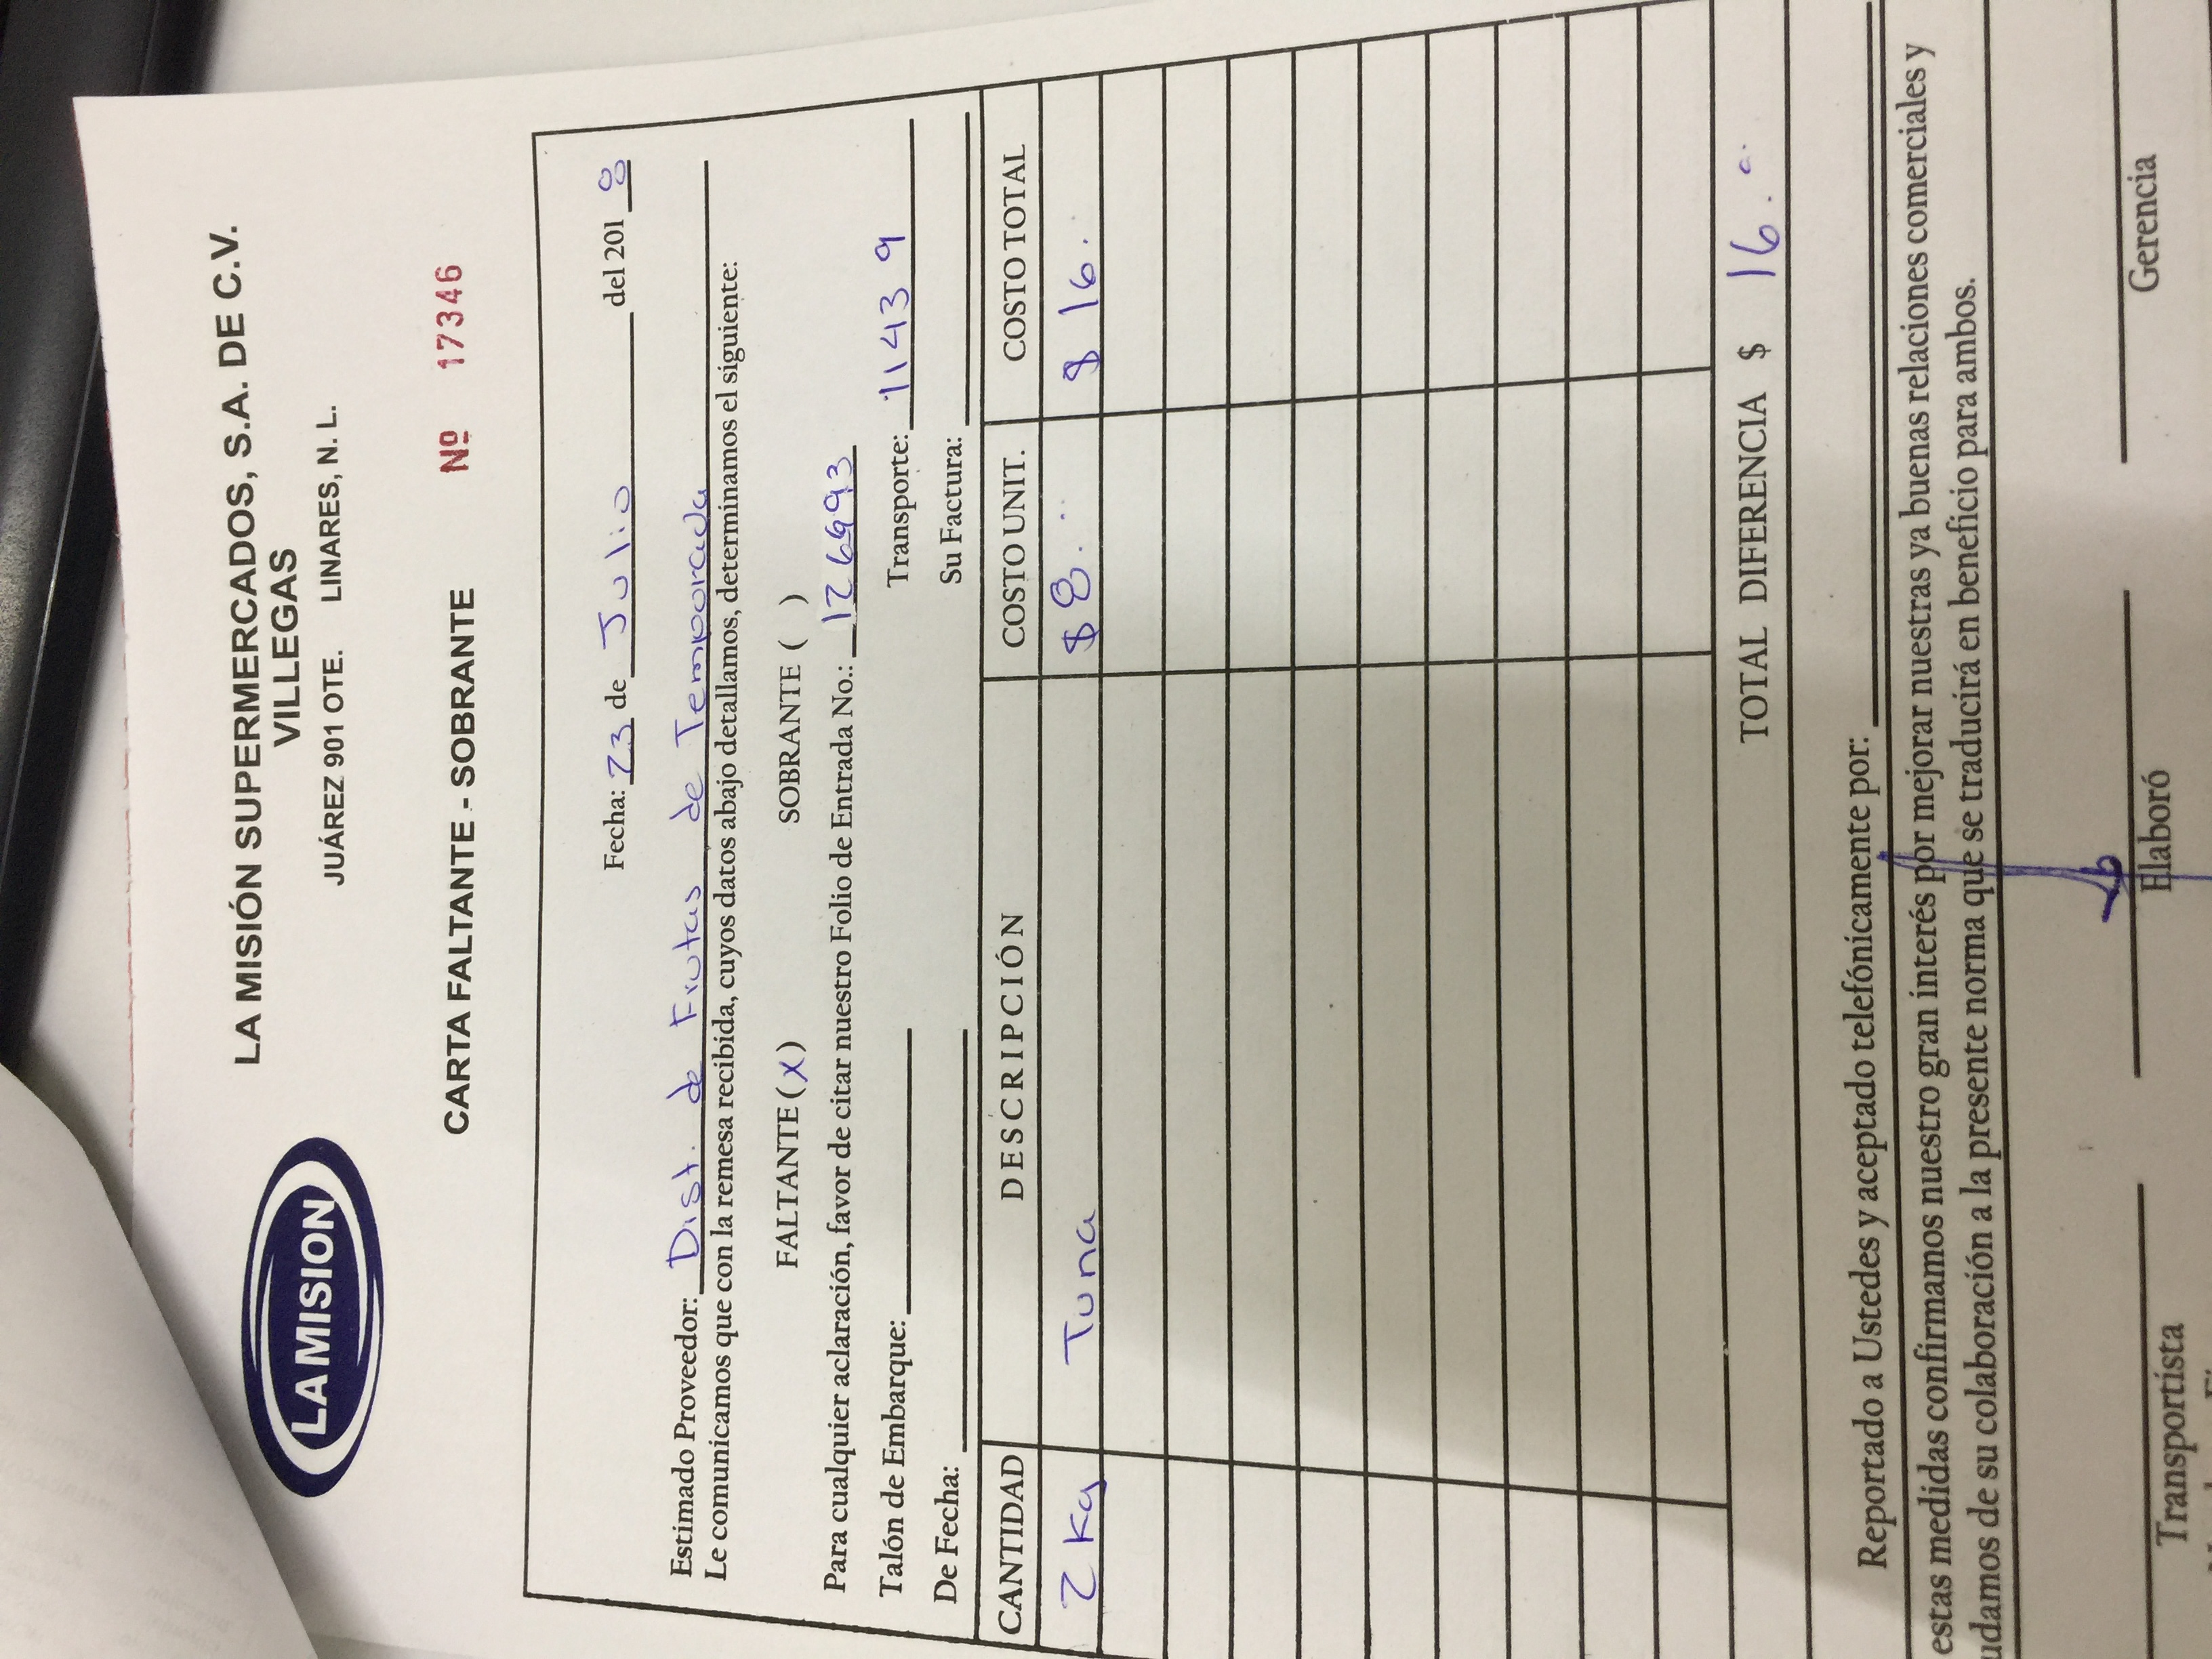 LA MISION
LA MISIÓN SUPERMERCADOS, S.A. DE C.V.
VILLEGAS
JUÁREZ 901 OTE. LINARES, N. L.
CARTA FALTANTE - SOBRANTE Nº 17346
Fecha: 23 de Julio del 2018
Estimado Proveedor: Dist. de Frutas de Temporada
Le comunicamos que con la remesa recibida, cuyos datos abajo detallamos, determinamos el siguiente:
FALTANTE (X) SOBRANTE ( )
Para cualquier aclaración, favor de citar nuestro Folio de Entrada No.: 126993
Talón de Embarque: Transporte: 11439
De Fecha: Su Factura:
CANTIDAD DESCRIPCIÓN COSTO UNIT. COSTO TOTAL
2 Kg Tuna $8. $ 16.
TOTAL DIFERENCIA $ 16.
Reportado a Ustedes y aceptado telefónicamente por:
estas medidas confirmamos nuestro gran interés por mejorar nuestras ya buenas relaciones comerciales y
udamos de su colaboración a la presente norma que se traducirá en beneficio para ambos.
Transportista Elaboró Gerencia